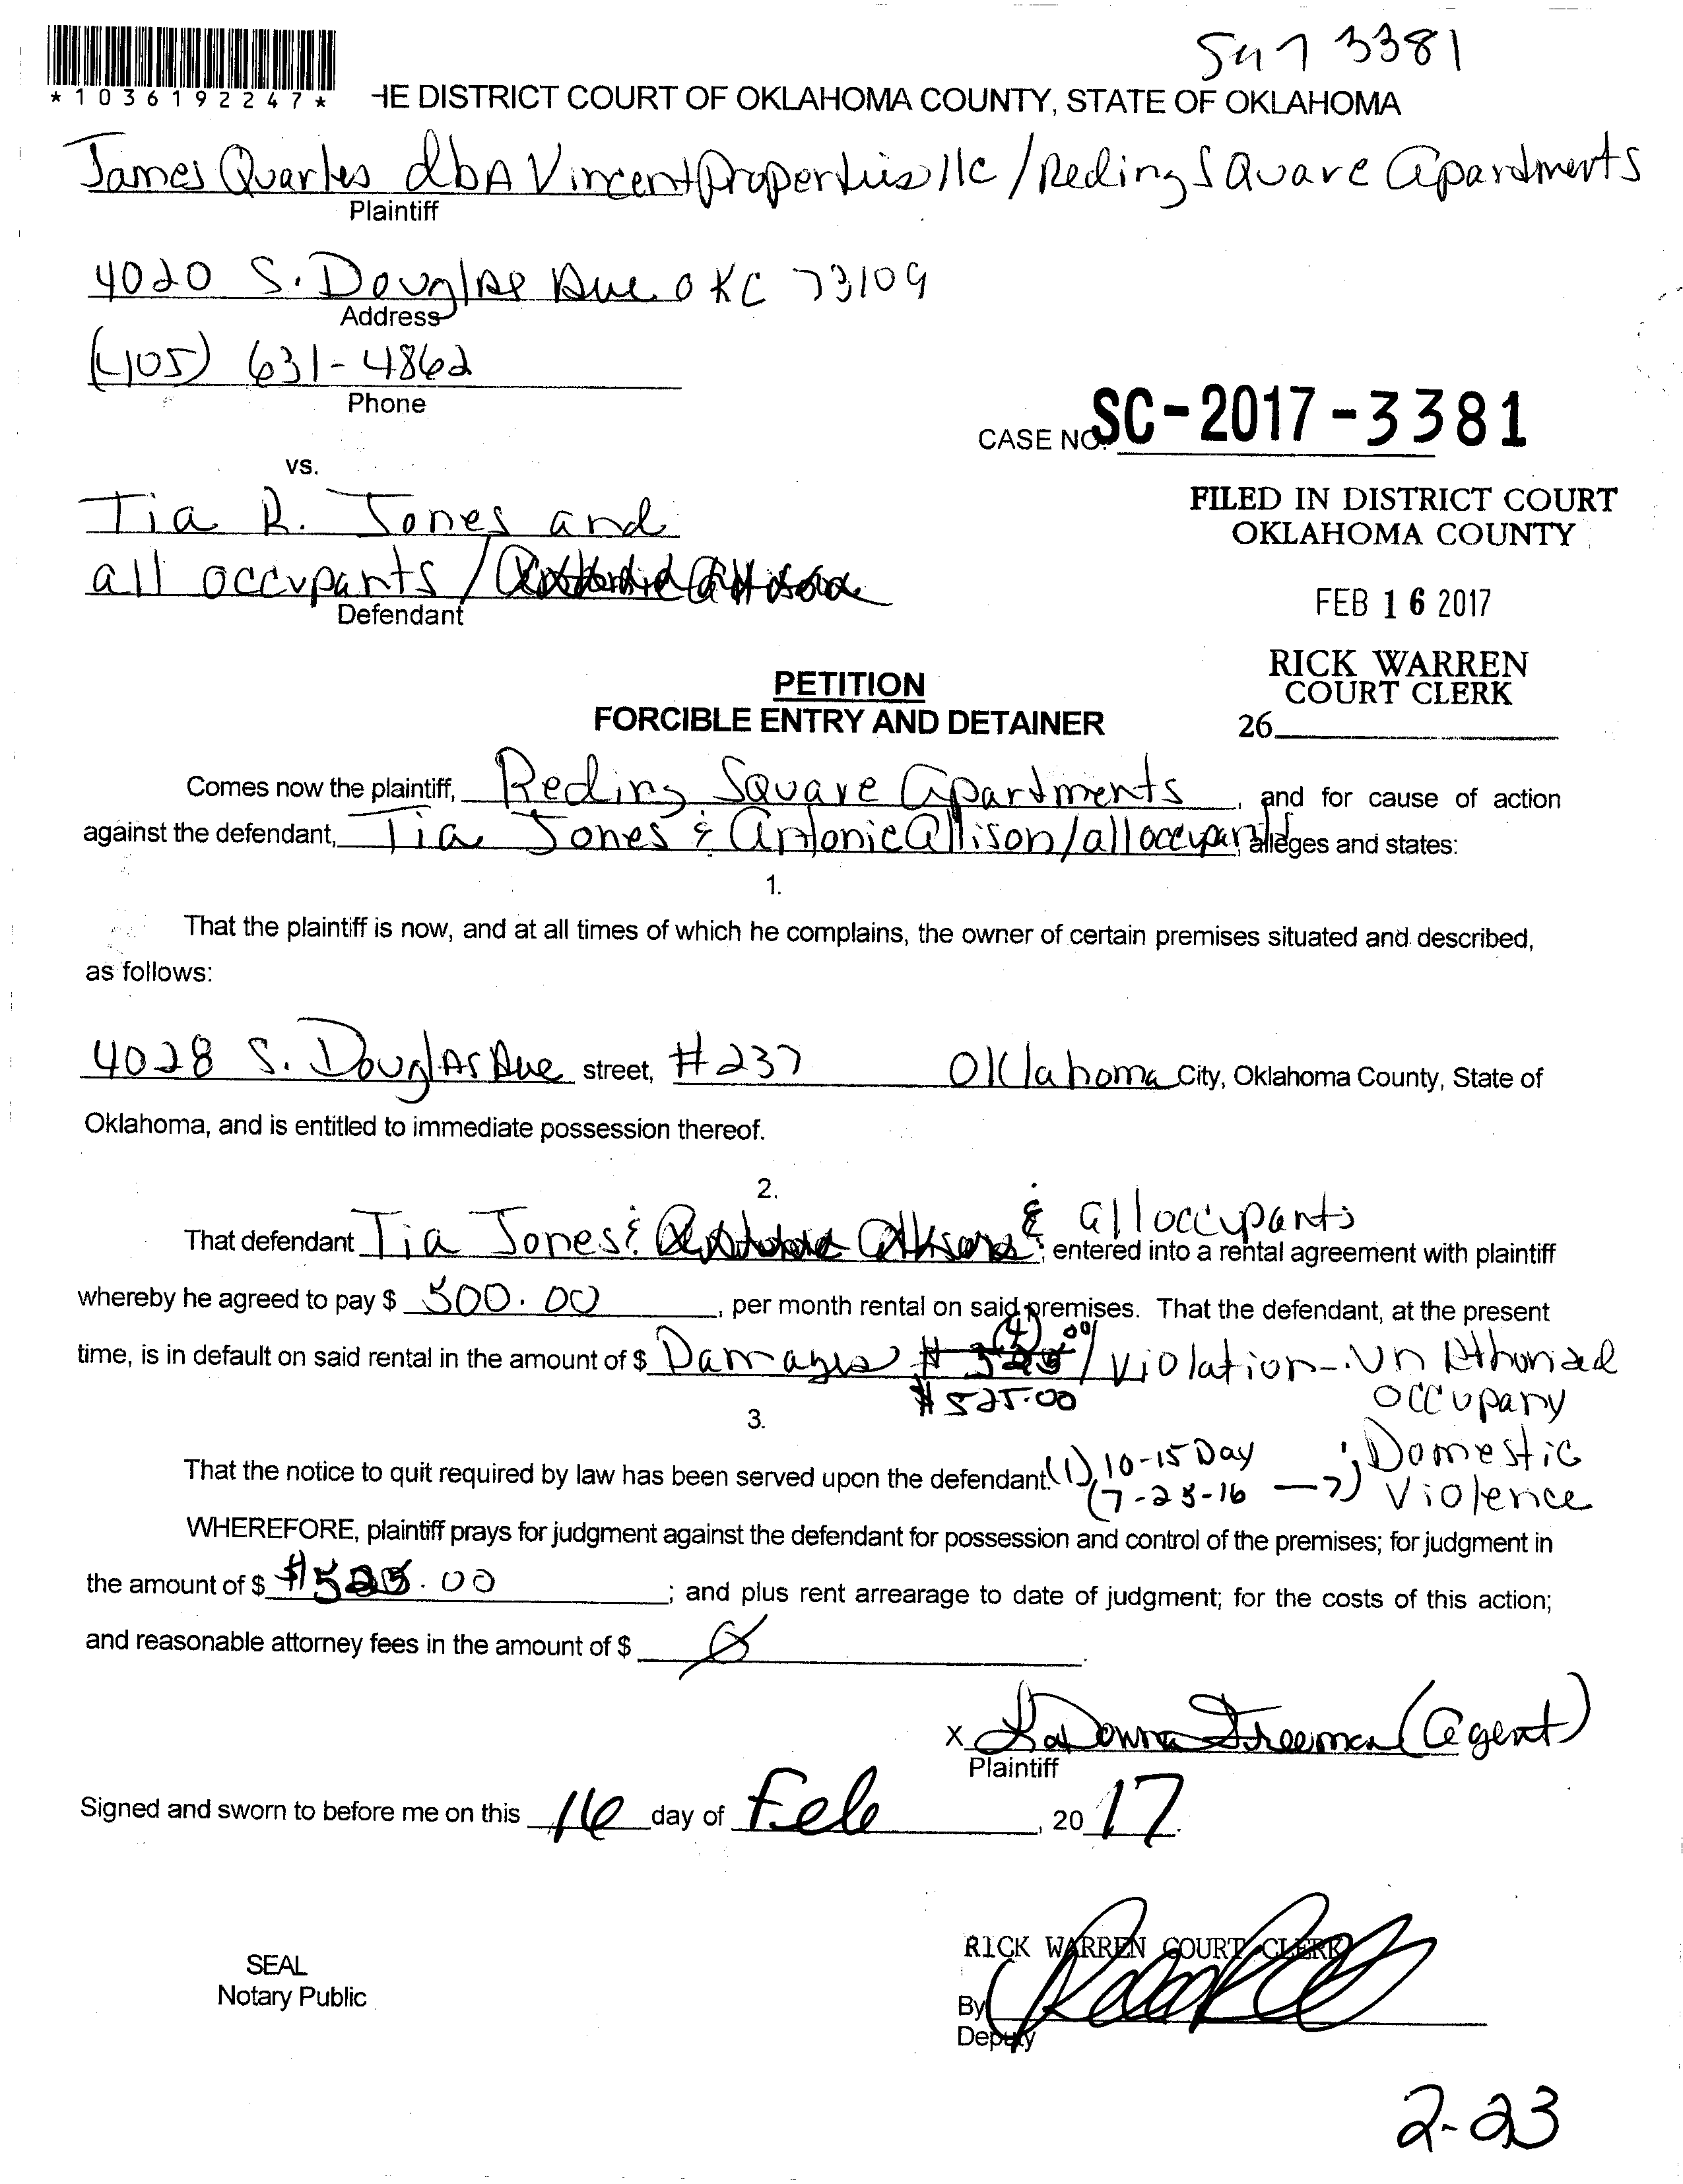 Sh7 3381
*1036192247*
HE DISTRICT COURT OF OKLAHOMA COUNTY, STATE OF OKLAHOMA
James Quarles dbA Vincent Properties llc / Reding Square Apartments
Plaintiff
4020 S. Douglas Ave OKC 73109
Address
(405) 631-4862
Phone
CASE NO. SC-2017-3381
vs.
Tia R. Jones and
all occupants /
Defendant
FILED IN DISTRICT COURT
OKLAHOMA COUNTY
FEB 16 2017
RICK WARREN
COURT CLERK
26
PETITION
FORCIBLE ENTRY AND DETAINER
Comes now the plaintiff, Reding Square Apartments, and for cause of action
against the defendant, Tia Jones & Antonio Allison/all occupants, alleges and states:
1.
That the plaintiff is now, and at all times of which he complains, the owner of certain premises situated and described,
as follows:
4028 S. Douglas Ave street, #237 Oklahoma City, Oklahoma County, State of
Oklahoma, and is entitled to immediate possession thereof.
2.
That defendant Tia Jones & & all occupants, entered into a rental agreement with plaintiff
whereby he agreed to pay $ 500.00, per month rental on said premises. That the defendant, at the present
time, is in default on said rental in the amount of $ Damages / Violation-UnAthorized
$525.00 occupany
3.
; Domestic
Violence
That the notice to quit required by law has been served upon the defendant. (1) 10-15 Day
WHEREFORE, plaintiff prays for judgment against the defendant for possession and control of the premises; for judgment in
the amount of $ $525.00; and plus rent arrearage to date of judgment; for the costs of this action;
and reasonable attorney fees in the amount of $
x LaDonna Freeman (agent)
Plaintiff
Signed and sworn to before me on this 16 day of Feb, 2017.
SEAL
Notary Public
RICK WARREN COURT CLERK
By
Deputy
2-23